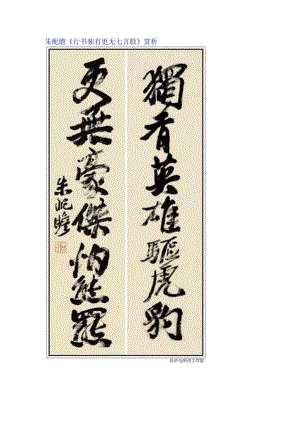 朱屺瞻《行书独有更无七言联》赏析
獨有英雄驅虎豹
更無豪傑怕熊羆
朱屺瞻